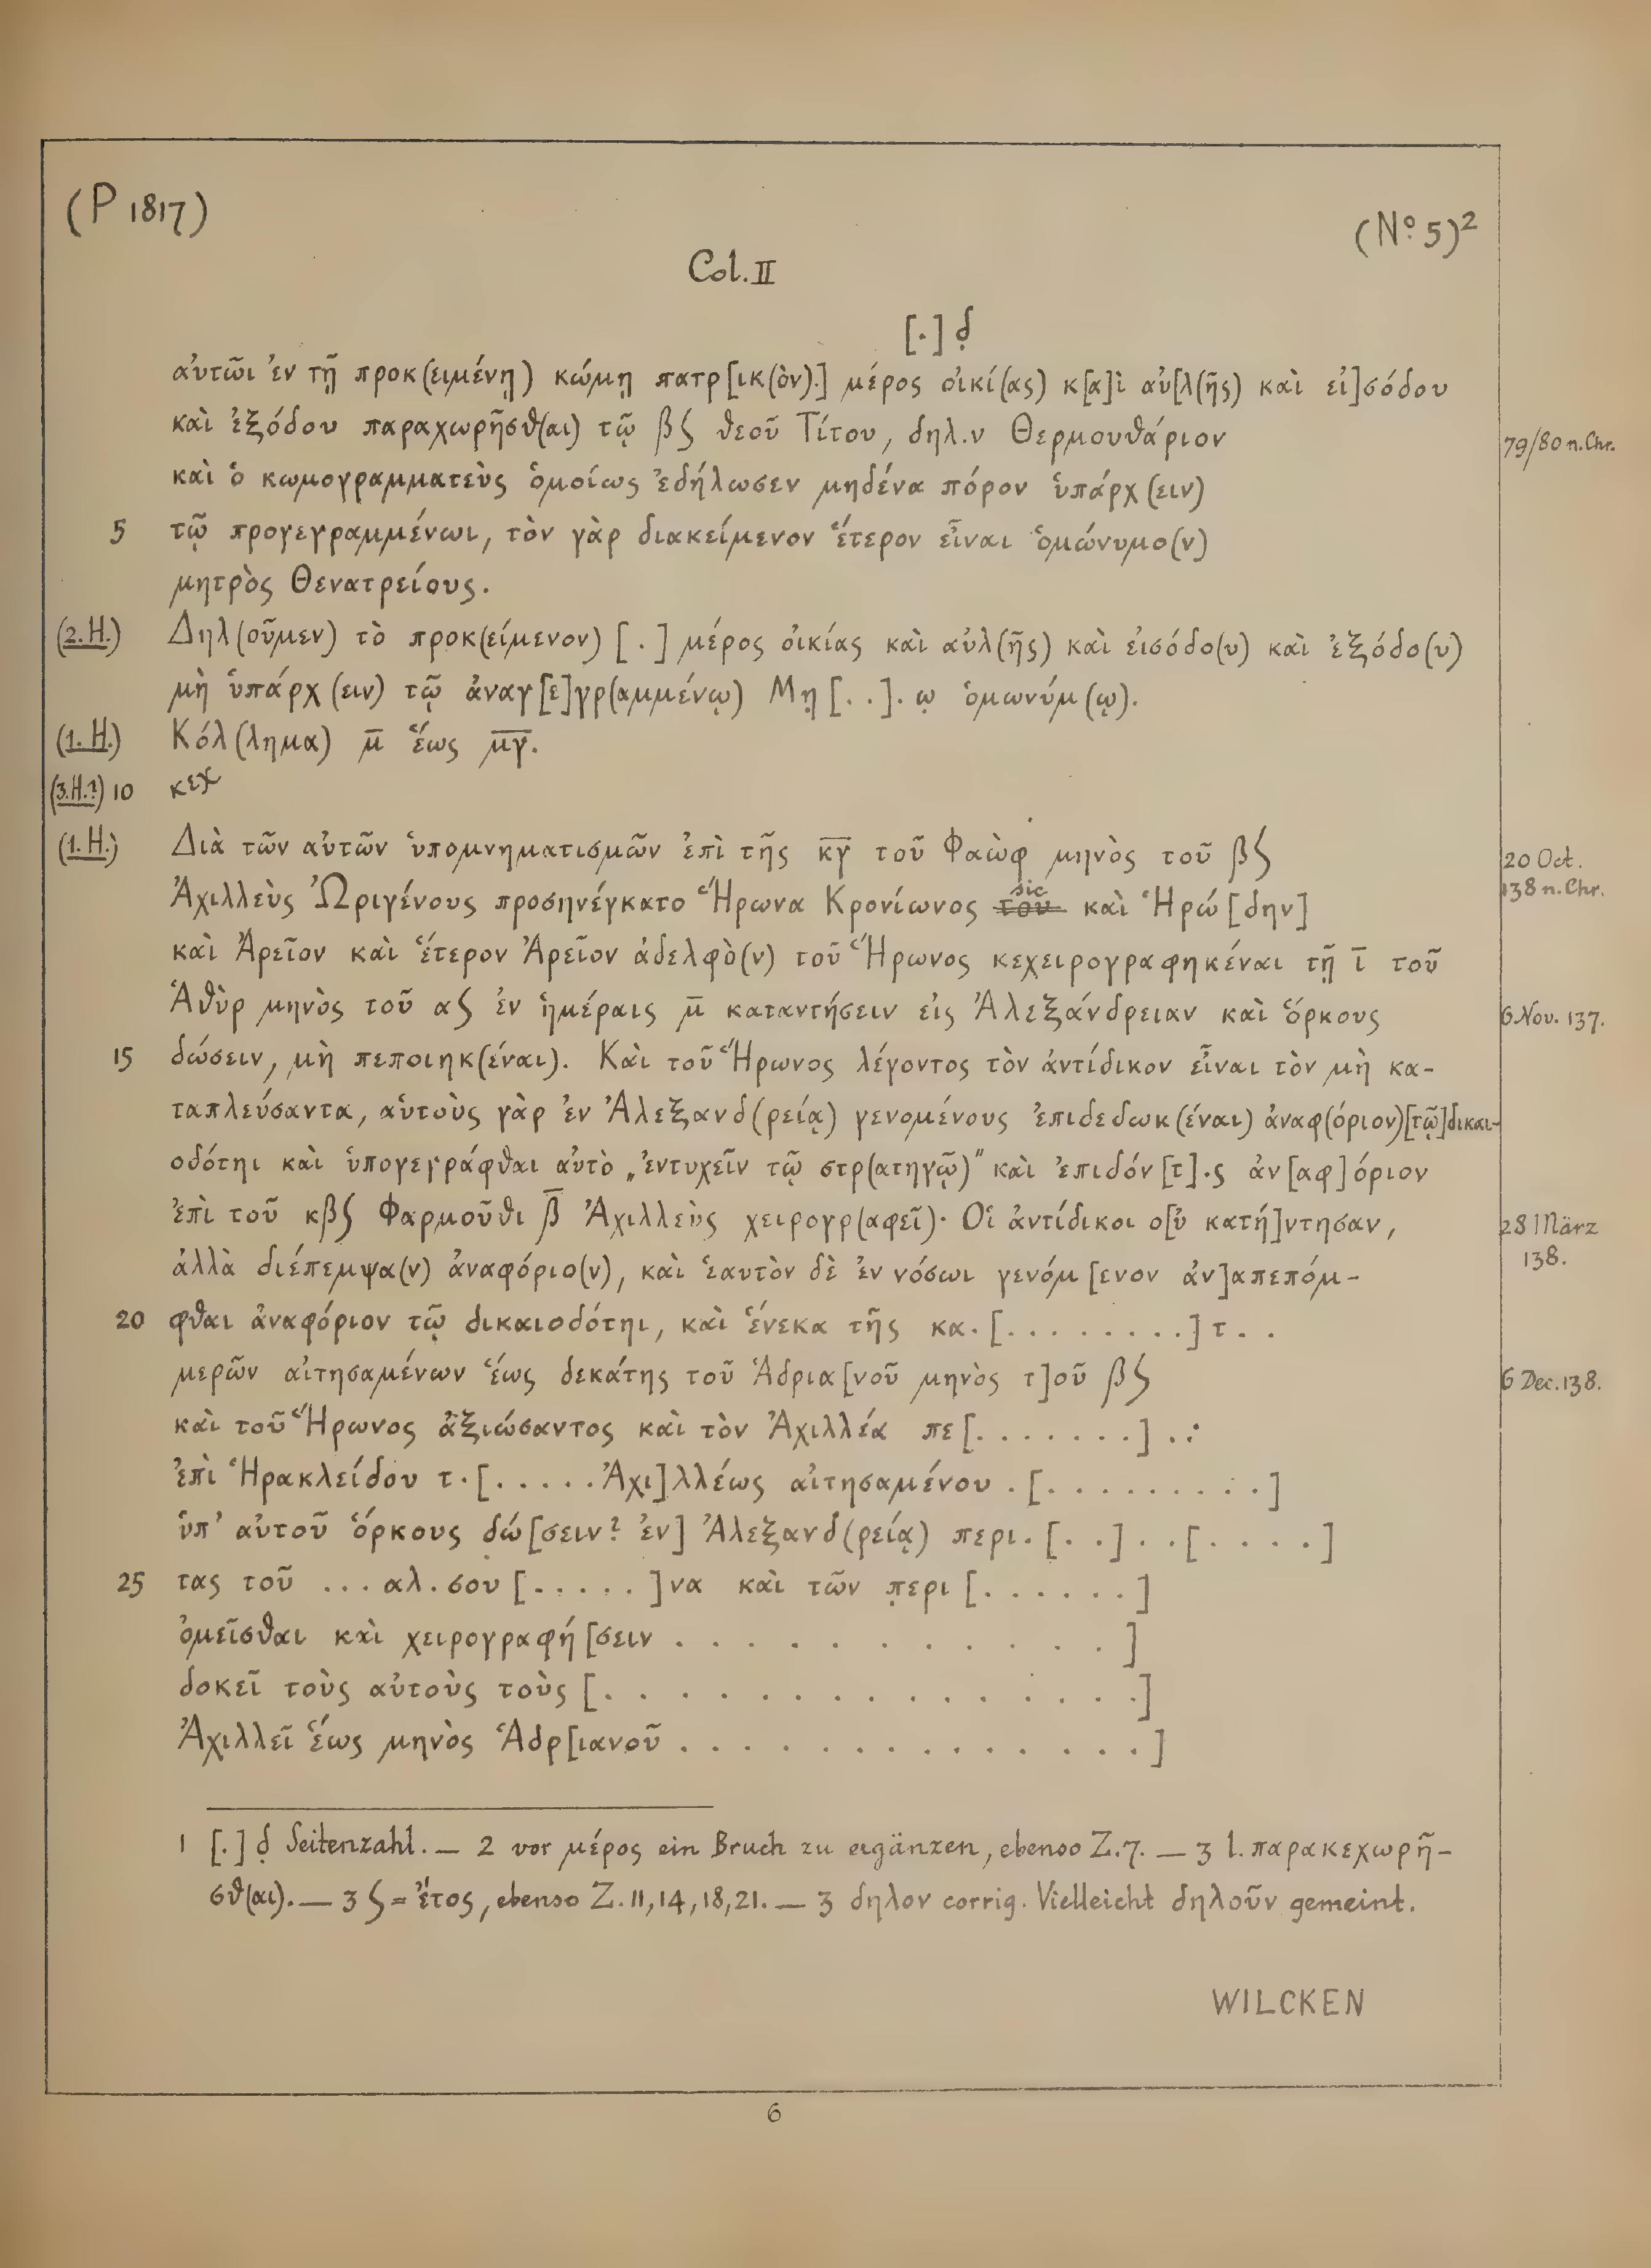 (P 1817)
(Nº 5)²
Col. II
[.] δ̣
αὐτῶι ἐν τῇ προκ(ειμένῃ) κώμῃ πατρ[ικ(ὸν).] μέρος οἰκί(ας) κ[α]ὶ αὐ[λ(ῆς) καὶ εἰ]σόδου
καὶ ἐξόδου παραχωρῆσθ(αι) τῷ βς θεοῦ Τίτου, δηλ.ν Θερμουθάριον 79/80 n. Chr.
καὶ ὁ κωμογραμματεὺς ὁμοίως ἐδήλωσεν μηδένα πόρον ὑπάρχ(ειν)
5 τῷ προγεγραμμένωι, τὸν γὰρ διακείμενον ἕτερον εἶναι ὁμώνυμο(ν)
μητρὸς Θενατρείους.
(2. H.) Δηλ(οῦμεν) τὸ προκ(είμενον) [.] μέρος οἰκίας καὶ αὐλ(ῆς) καὶ εἰσόδο(υ) καὶ ἐξόδο(υ)
μὴ ὑπάρχ(ειν) τῷ ἀναγ[ε]γρ(αμμένῳ) Μη̣[..].ῳ ὁμωνύμ(ῳ).
(1. H.) Κόλ(λημα) μ̅ ἕως μ̅γ̅.
(3. H.?) 10 κεχ
(1. H.) Διὰ τῶν αὐτῶν ὑπομνηματισμῶν ἐπὶ τῆς κ̅γ̅ τοῦ Φαὼφ μηνὸς τοῦ βς 20 Oct.
Ἀχιλλεὺς Ὠριγένους προσηνέγκατο Ἥρωνα Κρονίωνος του sic καὶ Ἡρώ[δην] 138 n. Chr.
καὶ Ἀρεῖον καὶ ἕτερον Ἀρεῖον ἀδελφὸ(ν) τοῦ Ἥρωνος κεχειρογραφηκέναι τῇ ι̅ τοῦ
Ἁθὺρ μηνὸς τοῦ ας ἐν ἡμέραις μ̅ καταντήσειν εἰς Ἀλεξάνδρειαν καὶ ὅρκους 6 Nov. 137.
15 δώσειν, μὴ πεποιηκ(έναι). Καὶ τοῦ Ἥρωνος λέγοντος τὸν ἀντίδικον εἶναι τὸν μὴ κα-
ταπλεύσαντα, αὑτοὺς γὰρ ἐν Ἀλεξανδ(ρείᾳ) γενομένους ἐπιδεδωκ(έναι) ἀναφ(όριον)[τῷ]δικαι-
οδότηι καὶ ὑπογεγράφθαι αὐτὸ „ἐντυχεῖν τῷ στρ(ατηγῷ)" καὶ ἐπιδόν[τ].ς ἀν[αφ]όριον
ἐπὶ τοῦ κβς Φαρμοῦθι β̅ Ἀχιλλεὺς χειρογρ(αφεῖ)· Οἱ ἀντίδικοι ο[ὐ κατή]ντησαν, 28 März
ἀλλὰ διέπεμψα(ν) ἀναφόριο(ν), καὶ ἑαυτὸν δὲ ἐν νόσωι γενόμ[ενον ἀν]απεπόμ- 138.
20 φθαι ἀναφόριον τῷ δικαιοδότηι, καὶ ἕνεκα τῆς κα.[........]τ..
μερῶν αἰτησαμένων ἕως δεκάτης τοῦ Ἁδρια[νοῦ μηνὸς τ]οῦ βς 6 Dec. 138.
καὶ τοῦ Ἥρωνος ἀξιώσαντος καὶ τὸν Ἀχιλλέα πε[.......]..:
ἐπὶ Ἡρακλείδου τ.[.....Ἀχι]λλέως αἰτησαμένου .[.........]
ὑπ' αὐτοῦ ὅρκους δώ[σειν? ἐν] Ἀλεξανδ(ρείᾳ) περι.[..]..[....]
25 τας τοῦ ...αλ.σου[.....]να καὶ τῶν π̣ερι[......]
ὀμεῖσθαι καὶ χειρογραφή[σειν ............]
δοκεῖ τοὺς αὐτοὺς τοὺς [...............]
Ἀχιλλεῖ ἕως μηνὸς Ἁδρ[ιανοῦ ..............]
1 [.] δ̣ Seitenzahl. — 2 vor μέρος ein Bruch zu ergänzen, ebenso Z. 7. — 3 l. παρακεχωρῆ-
σθ(αι). — 3 ς = ἔτος, ebenso Z. 11, 14, 18, 21. — 3 δηλον corrig. Vielleicht δηλοῦν gemeint.
WILCKEN
6